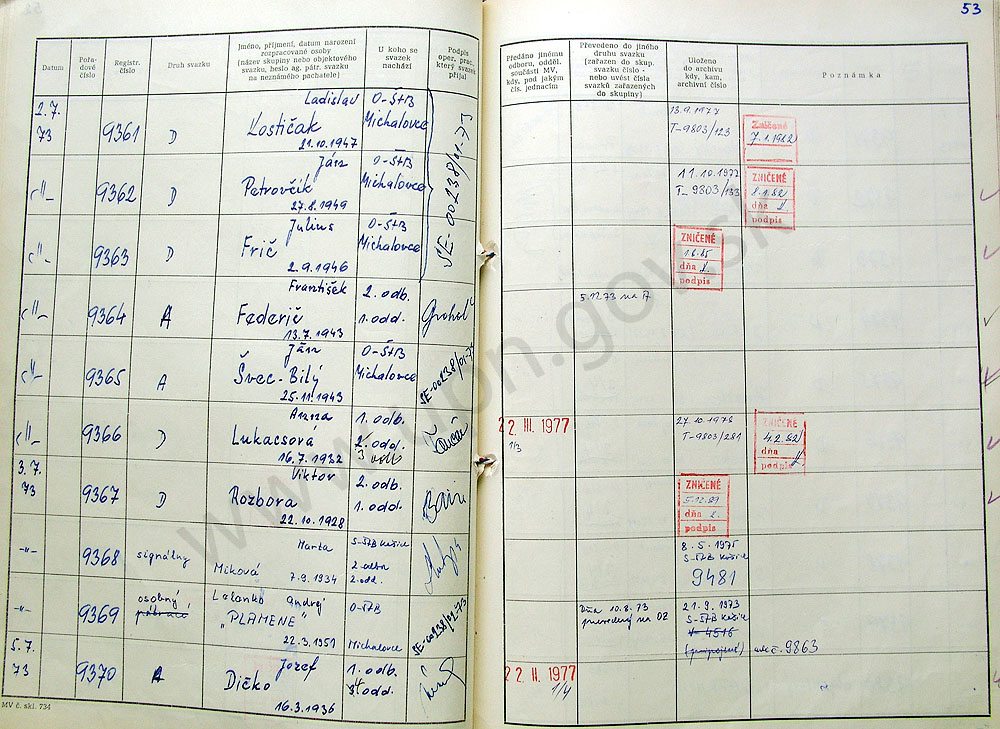 53
Datum
Pořadové číslo
Registr. číslo
Druh svazku
Jméno, příjmení, datum narození
rozpracované osoby
(název skupiny nebo objektového
svazku, heslo ag. pátr. svazku
na neznámého pachatele)
U koho se
svazek
nachází
Podpis
oper. prac.,
který svazek
přijal
Předáno jinému
odboru, odděl.
součásti MV,
kdy, pod jakým
čís. jednacím
Převedeno do jiného
druhu svazku
(zařazen do skup.
svazku číslo -
nebo uvést čísla
svazků zařazených
do skupiny)
Uloženo
do archivu
kdy, kam,
archivní číslo
Poznámka
2. 7.
73
9361
D
Ladislav
Kostičak
21. 10. 1947
O-ŠtB
Michalovce
SE-00238/01-73
13. 9. 1977
T-9803/123
Zničené
7. 1. 1982
-"-
9362
D
Ján
Petrovčik
27. 8. 1949
O-ŠtB
Michalovce
11. 10. 1977
T-9803/133
ZNIČENÉ
8. 1. 82
dňa
podpis
-"-
9363
D
Július
Frič
2. 9. 1946
O-ŠtB
Michalovce
ZNIČENÉ
dňa
podpis
-"-
9364
A
František
Federič
13. 7. 1943
2. odb.
1. odd.
5.12.73 na A
-"-
9365
A
Ján
Švec-Bilý
25. 11. 1943
O-ŠtB
Michalovce
SE-00238/01-73
-"-
9366
D
Anna
Lukacsová
16. 7. 1932
1. odb.
2. odd.
22. III. 1977
1/3
27. 10. 1978
T-9803/281
ZNIČENÉ
4. 2. 82
dňa
podpis
3. 7.
73
9367
D
Viktor
Rozbora
22. 10. 1928
2. odb.
1. odd.
ZNIČENÉ
dňa
podpis
-"-
9368
signálny
Marta
Miková
7. 9. 1934
S-ŠTB Košice
2. odbor
2. odd.
8. 5. 1975
S-ŠTB Košice
9481
-"-
9369
osobný
Andrej
"PLAMENE"
22. 3. 1951
O-ŠTB
Michalovce
SE-00238/02-73
Dňa 10. 8. 73
prevedený na 02
21. 9. 1973
S-ŠTB Košice
V-4516
(pripojené)
9863
5. 7.
73
9370
A
Jozef
Dičko
16. 3. 1936
1. odb.
odd.
22. II. 1977
1/4
MV č. skl. 734
www.upn.gov.sk